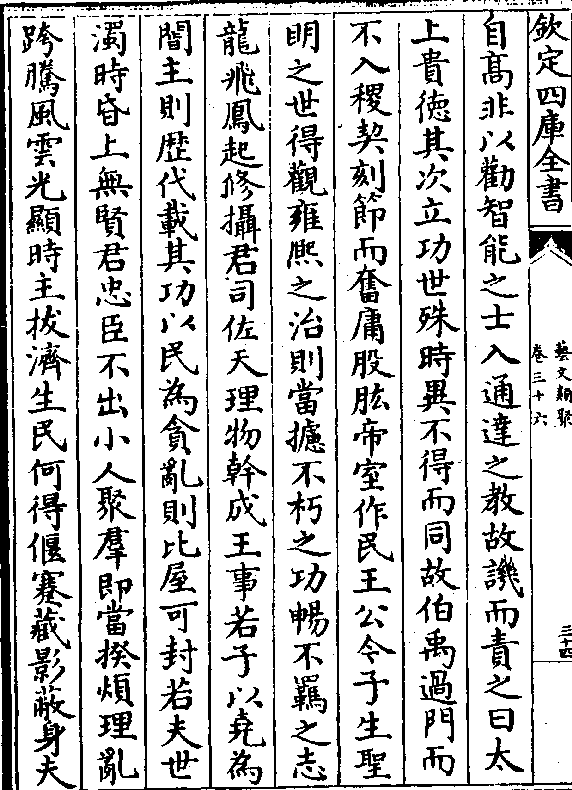 欽定四庫全書
藝文類聚
卷三十六
三十四
自髙非以勸智能之士入通達之教故譏而責之曰太
上貴徳其次立功世殊時異不得而同故伯禹過門而
不入稷契刻節而奮庸股肱帝室作民王公今子生聖
明之世得觀雍熈之治則當攄不朽之功暢不羈之志
龍飛鳳起修攝君司佐天理物幹成王事若子以堯為
闇主則歴代載其功以民為貪亂則比屋可封若夫世
濁時昏上無賢君忠臣不出小人聚羣即當揆煩理亂
跨騰風雲光顯時主拔濟生民何得偃蹇藏影蔽身夫